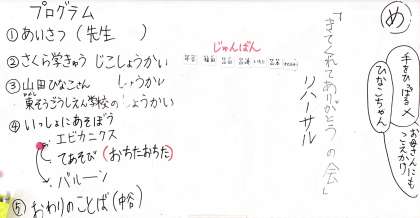 め
手をひっぱる×
お母さんにも
つたえかけ
ひなこちゃん
「きてくれてありがとうの会」
リハーサル
プログラム
①あいさつ（先生　　）
②さくら学きゅう じこしょうかい
じゅんばん
③山田ひなこさん しょうかい
東ぞうごうしえん学校の しょうかい
④いっしょにあそぼう
エビカニクス
てあそび（おちたおちた）
バルーン
⑤おわりのことば（中谷）